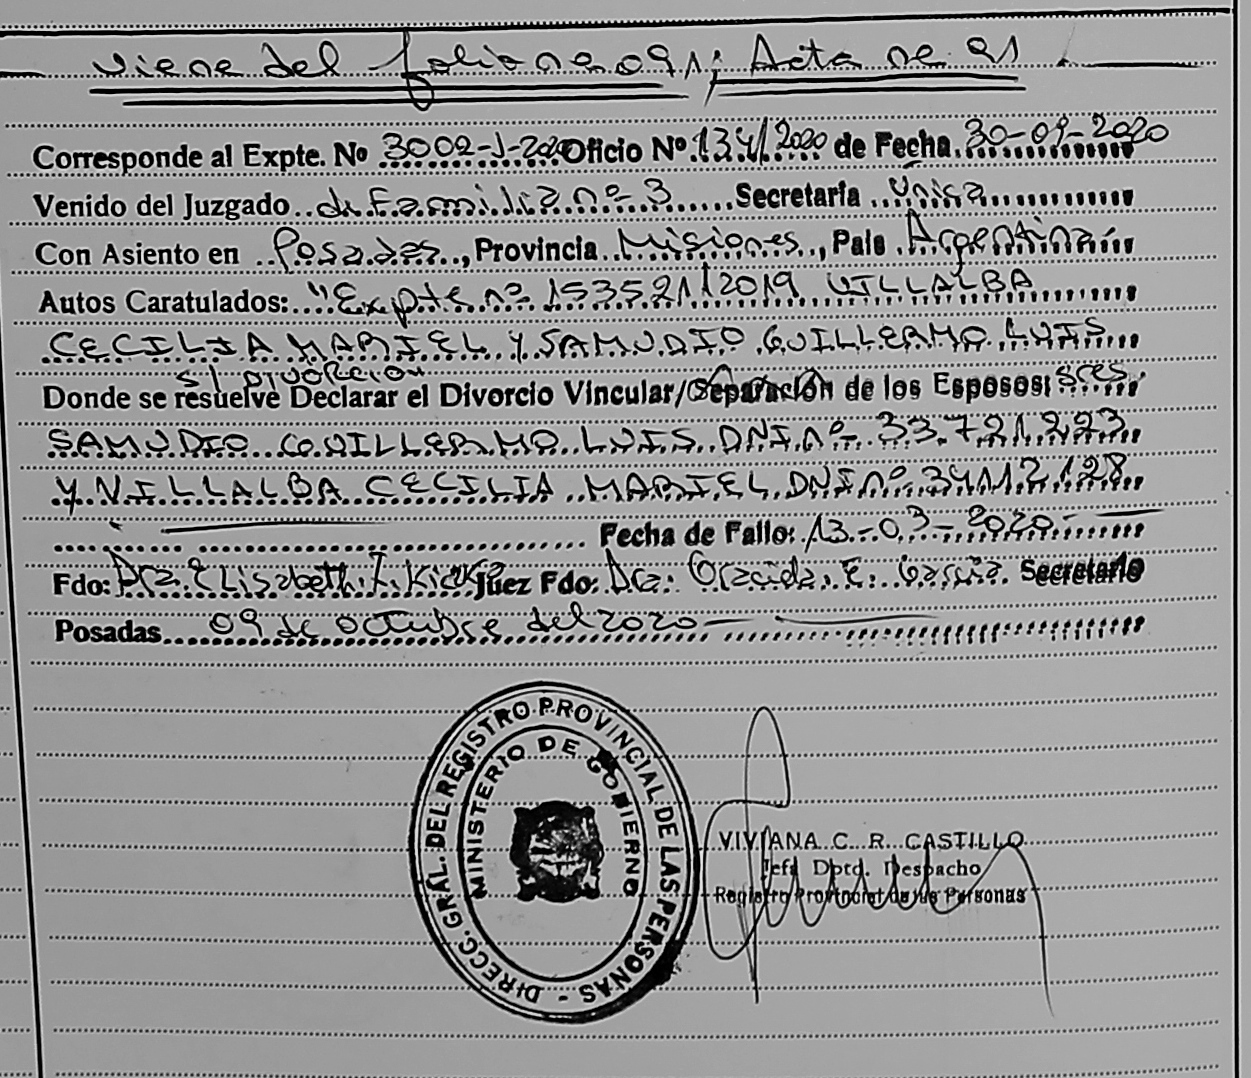 viene del folio nº 091; Acta nº 91
Corresponde al Expte. Nº 3002-J-2020 Oficio Nº 134/2020 de Fecha 30-09-2020
Venido del Juzgado de Familia nº 3 Secretaría Única
Con Asiento en Posadas, Provincia Misiones, País Argentina
Autos Caratulados: "Expte nº 153521/2019 VILLALBA
CECILIA MARIEL Y SAMUDIO GUILLERMO LUIS
S/ DIVORCIO"
Donde se resuelve Declarar el Divorcio Vincular/Separación de los Esposos: Sres.
SAMUDIO GUILLERMO LUIS DNI nº 33.721.223
Y VILLALBA CECILIA MARIEL DNI nº 34.112.128
Fecha de Fallo: 13-03-2020
Fdo: Dra. Elisabeth Juez Fdo: Dra: Graciela E. García Secretario
Posadas 09 de octubre del 2020
DIRECC. GRÁL. DEL REGISTRO PROVINCIAL DE LAS PERSONAS -
MINISTERIO DE GOBIERNO
VIVIANA C. R. CASTILLO
Jefa Dpto. Despacho
Registro Provincial de las Personas